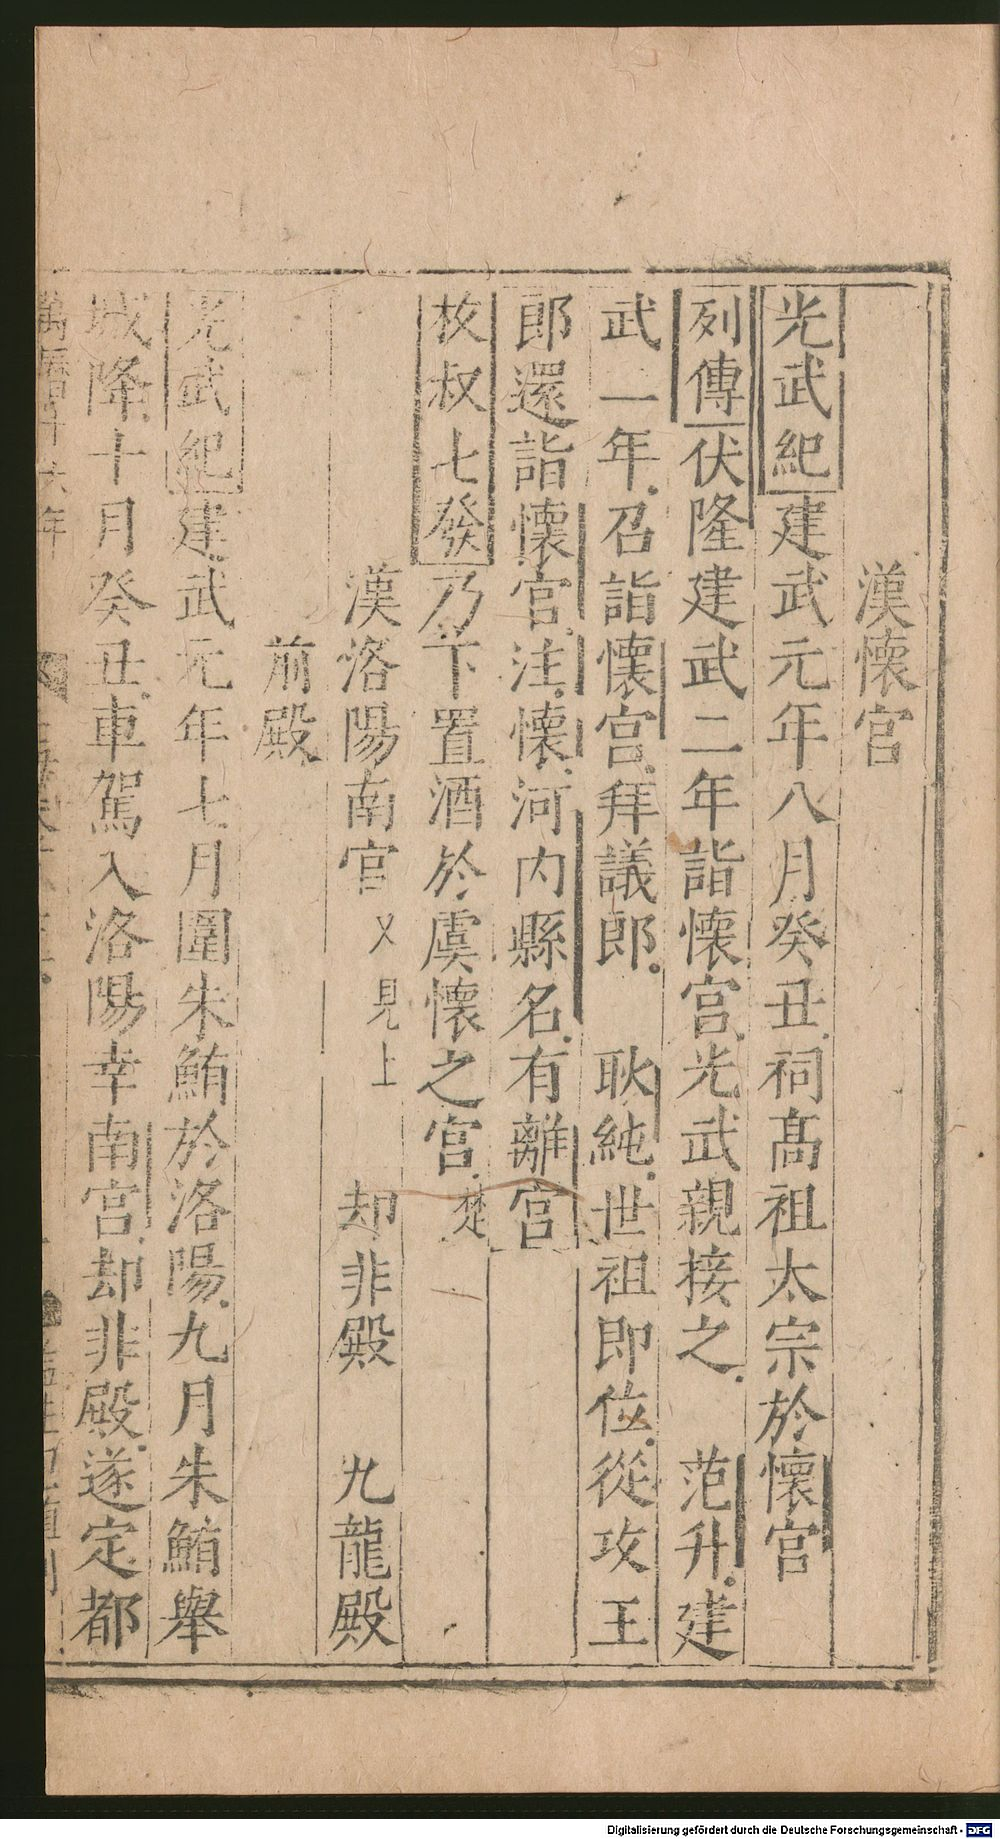 漢懷宮
光武紀建武元年八月癸丑祠高祖太宗於懷宮
列傳伏隆建武二年詣懷宮光武親接之　范升建
武一年召詣懷宮拜議郎　耿純世祖即位從攻王
郎還詣懷宮注懷河內縣名有離宮
枚叔七發乃下置酒於虞懷之宮楚
漢洛陽南宮又見上　却非殿　九龍殿
前殿
光武紀建武元年七月圍朱鮪於洛陽九月朱鮪舉
城降十月癸丑車駕入洛陽幸南宮却非殿遂定都
萬曆十六年
Digitalisierung gefördert durch die Deutsche Forschungsgemeinschaft - DFG